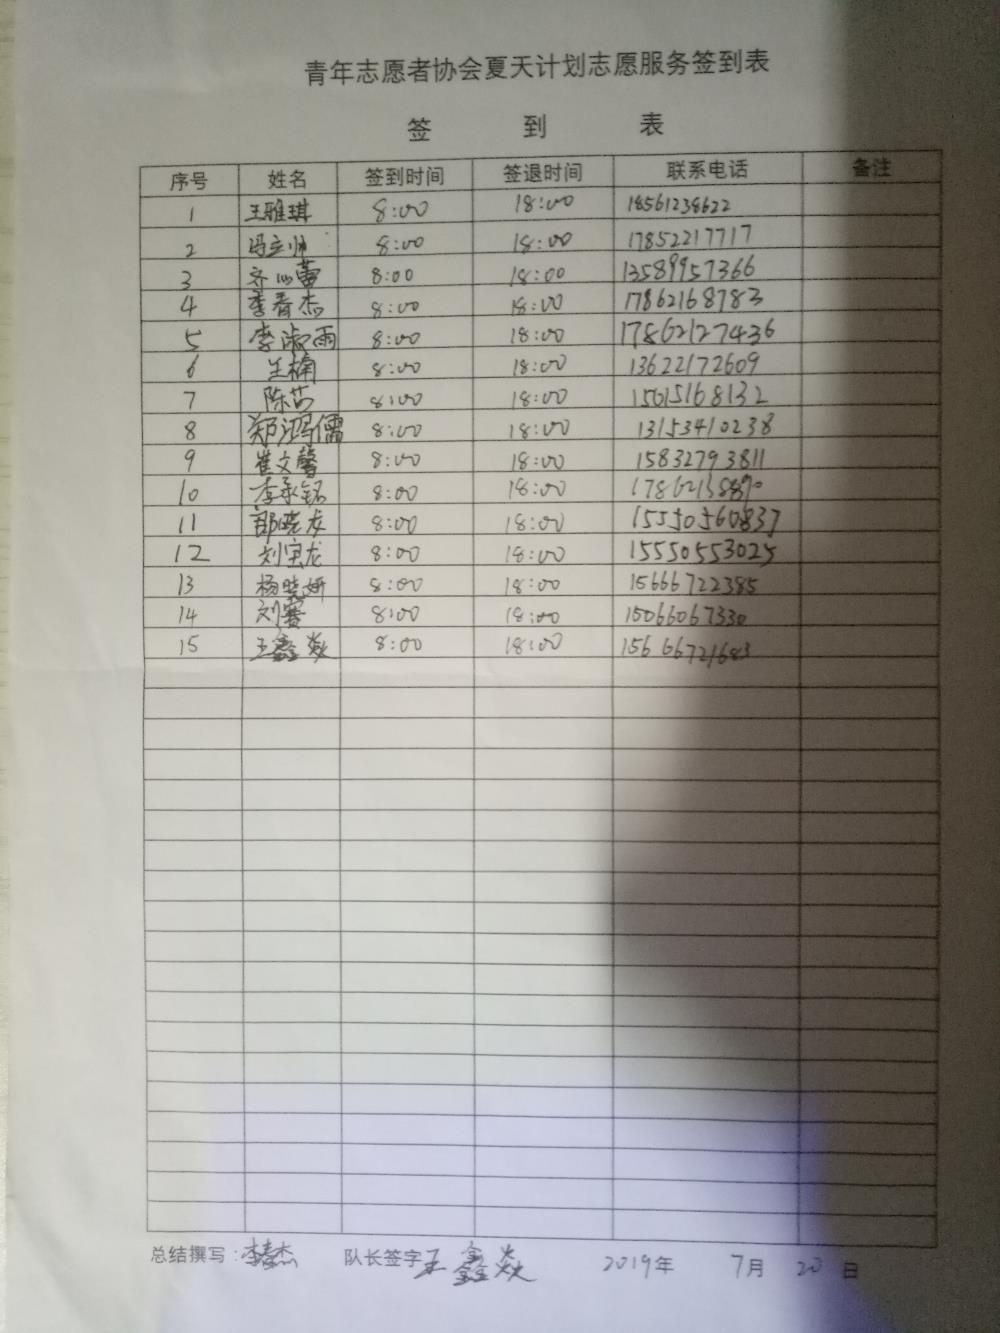 青年志愿者协会夏天计划志愿服务签到表
签 到 表
序号 姓名 签到时间 签退时间 联系电话 备注
1 王雅琪 8:00 18:00 18561238622
2 冯立帅 8:00 18:00 17852217717
3 齐心蕾 8:00 18:00 13589957366
4 李春杰 8:00 18:00 17862168783
5 李淑雨 8:00 18:00 17862127436
6 王楠 8:00 18:00 13622172609
7 陈茜 8:00 18:00 15615168132
8 郑鸿儒 8:00 18:00 13153410238
9 崔文馨 8:00 18:00 15832793811
10 李承铭 8:00 18:00
11 郭晓龙 8:00 18:00 15550560837
12 刘宝龙 8:00 18:00 15550553025
13 杨晓妍 8:00 18:00 15666722385
14 刘赛 8:00 18:00 15066067330
15 王鑫焱 8:00 18:00 15666721683
总结撰写：李春杰 队长签字 王鑫焱 2019年 7月 20日